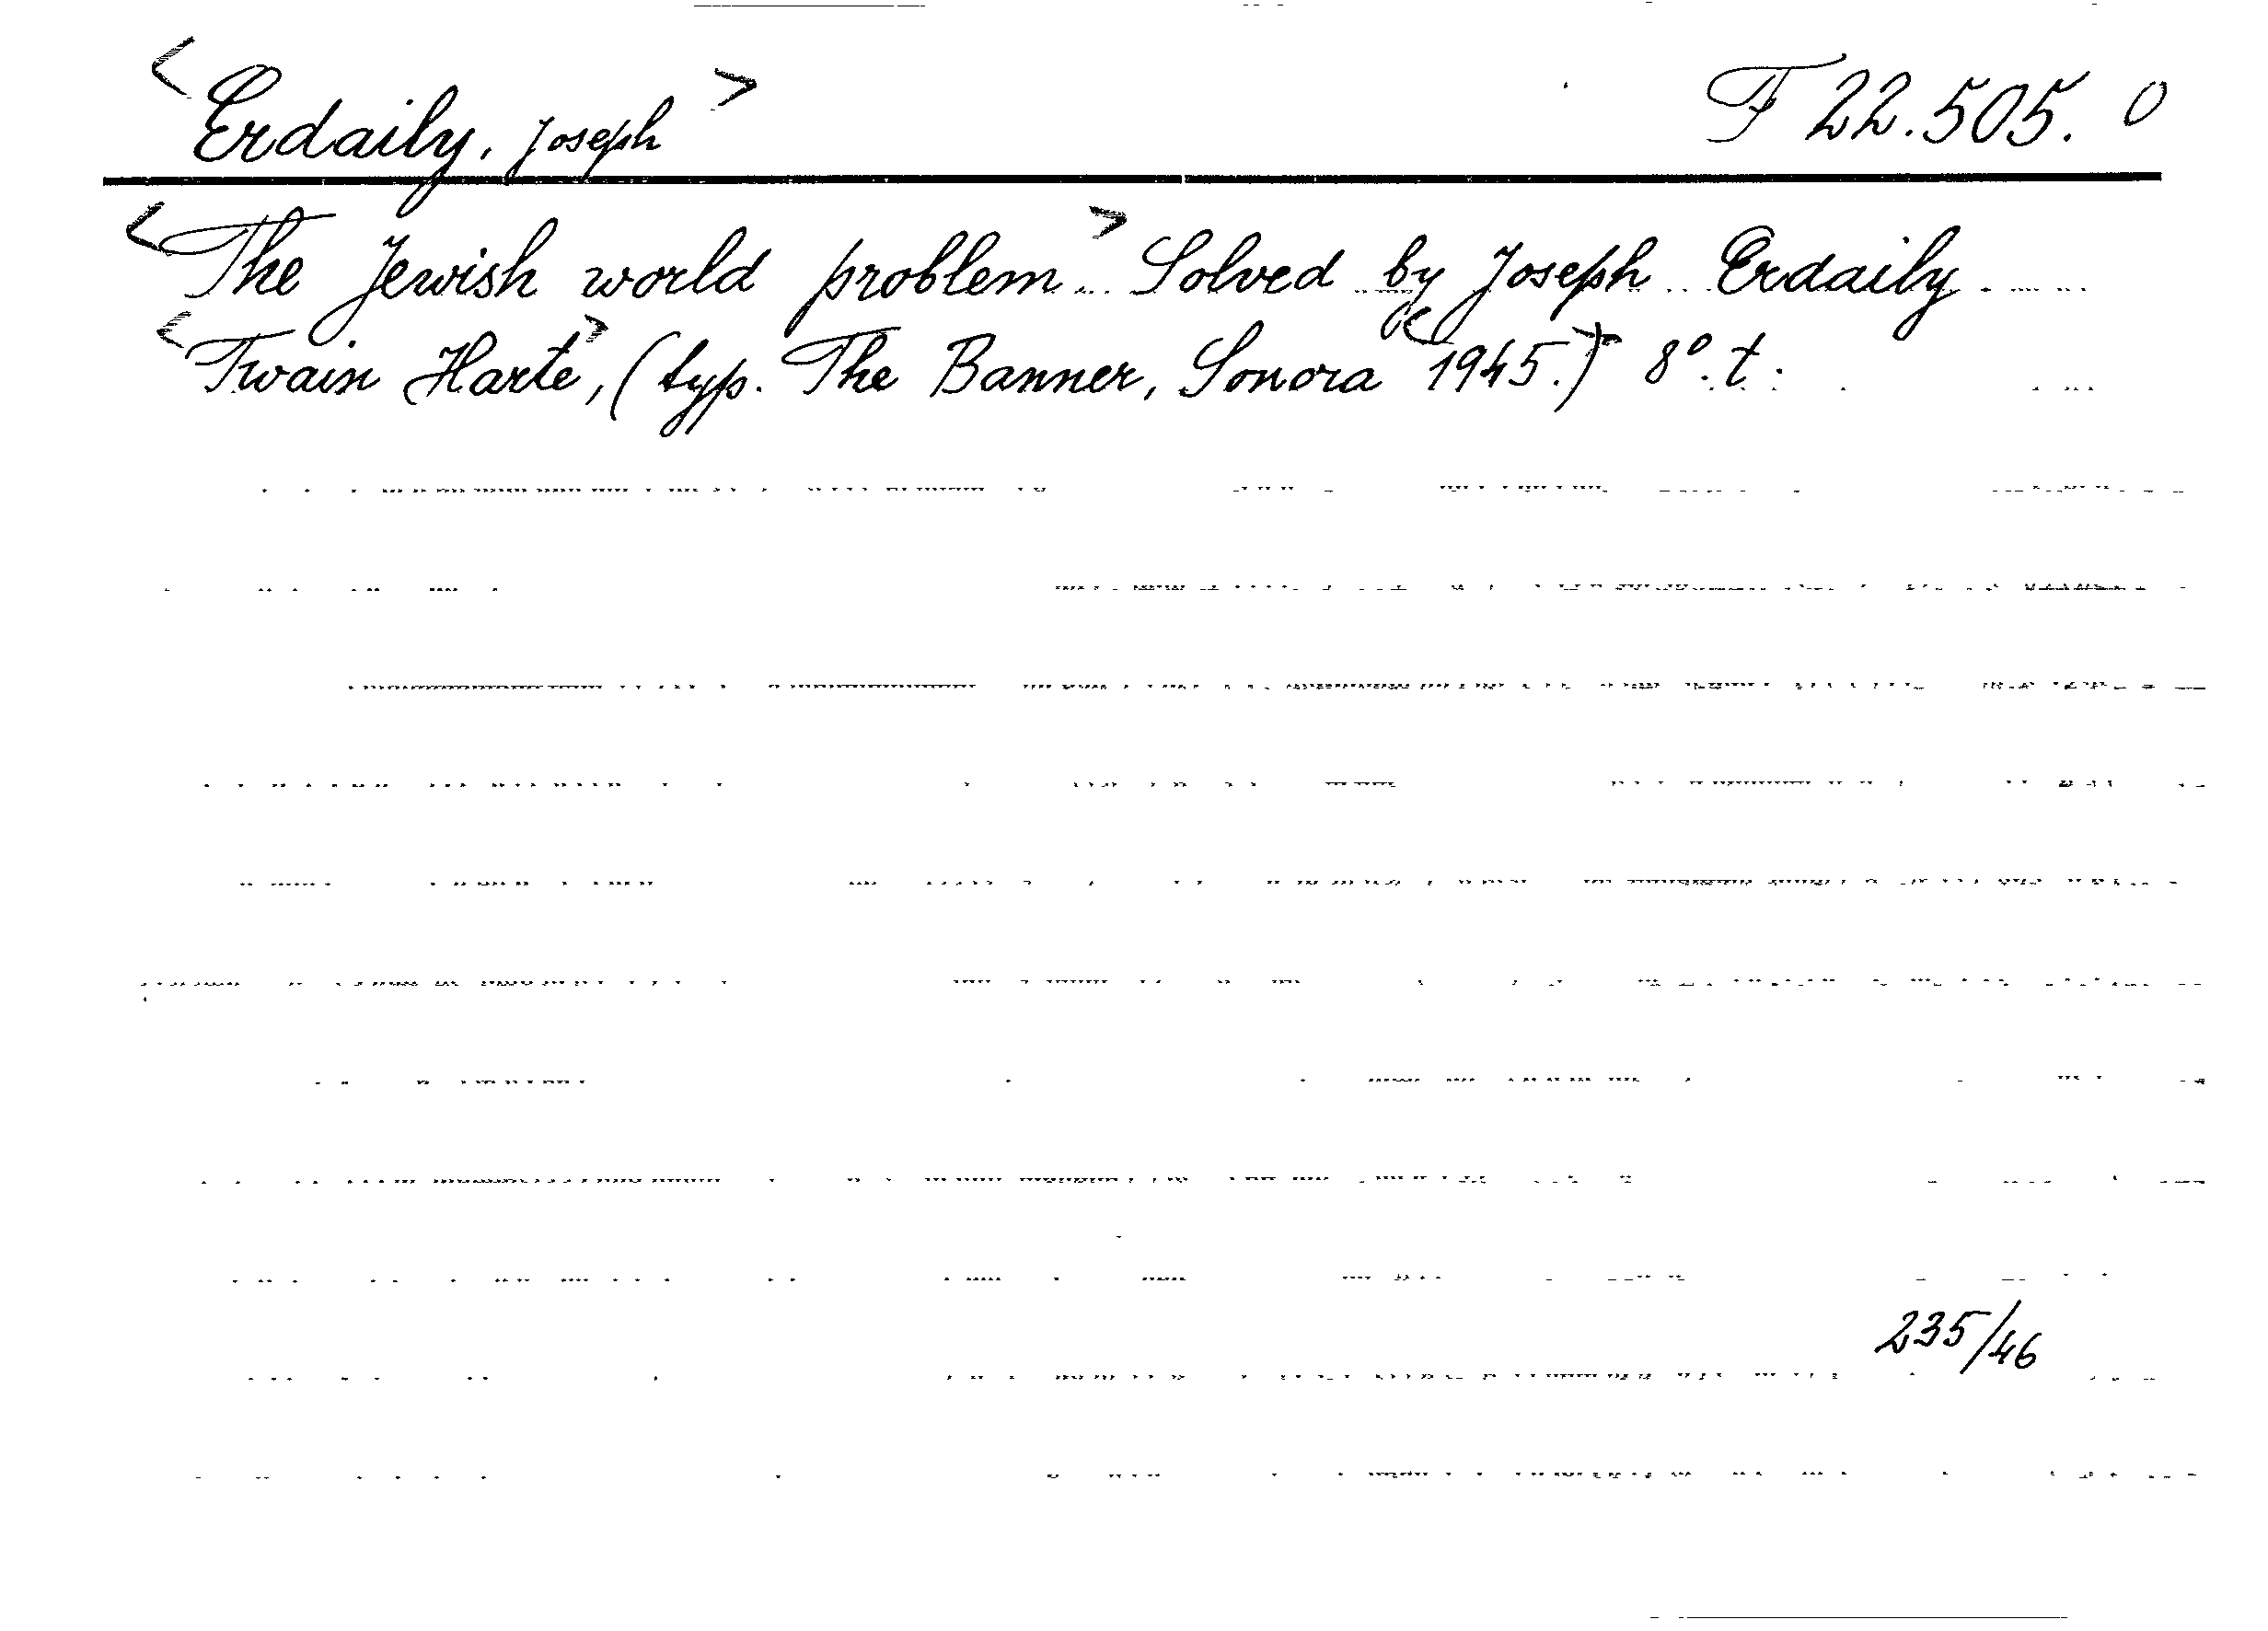 <Erdaily, Joseph> F 22.505. 0
<The Jewish world problem> Solved by Joseph Erdaily
<Twain Harte>, (typ. The Banner, Sonora <1945.>) 8°. t.
235/46